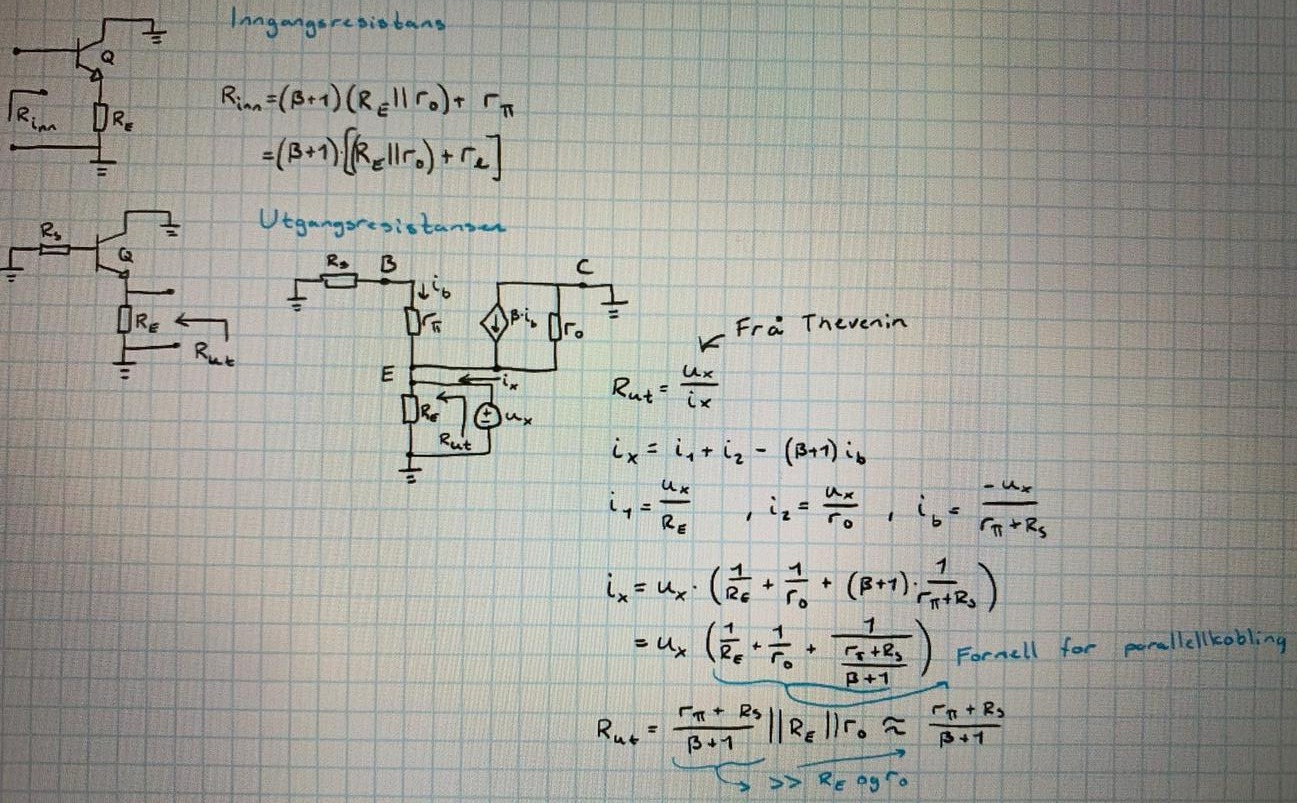 Inngangsresistans
Q
R_inn
R_E
R_inn = (β+1)(R_E || r_o) + r_π
= (β+1)·[(R_E || r_o) + r_e]
Utgangsresistansen
R_s
Q
R_E
R_ut
R_s
B
i_b
r_π
β·i_b
r_o
C
E
i_x
R_E
R_ut
u_x
Frå Thevenin
R_ut = u_x / i_x
i_x = i_1 + i_2 - (β+1) i_b
i_1 = u_x / R_E , i_2 = u_x / r_o , i_b = -u_x / (r_π + R_s)
i_x = u_x · (1/R_E + 1/r_o + (β+1) · 1/(r_π + R_s))
= u_x (1/R_E + 1/r_o + 1/((r_π + R_s)/(β+1))) Formell for parallellkobling
R_ut = (r_π + R_s)/(β+1) || R_E || r_o ≈ (r_π + R_s)/(β+1)
>> R_E og r_o